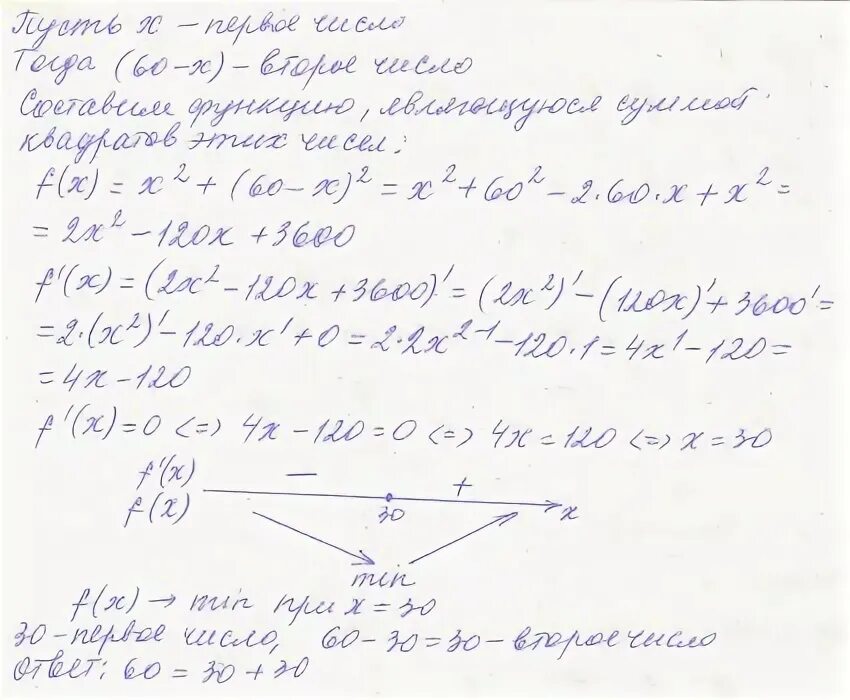 Пусть x – первое число
Тогда (60-x) – второе число
Составим функцию, являющуюся суммой
квадратов этих чисел:
f(x) = x² + (60-x)² = x² + 60² - 2·60·x + x² =
= 2x² - 120x + 3600
f'(x) = (2x² - 120x + 3600)' = (2x²)' - (120x)' + 3600' =
= 2·(x²)' - 120·x' + 0 = 2·2x²⁻¹ - 120·1 = 4x¹ - 120 =
= 4x - 120
f'(x) = 0 <=> 4x - 120 = 0 <=> 4x = 120 <=> x = 30
f'(x) – +
f(x) 30 x
min
f(x) → min при x = 30
30 - первое число, 60 - 30 = 30 - второе число
ответ: 60 = 30 + 30